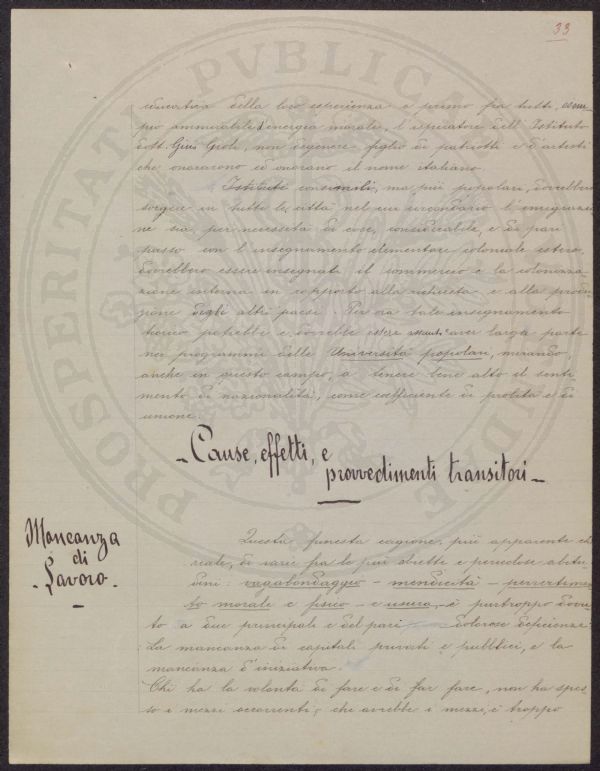 33
educatrice della loro esperienza e primo fra tutti, esem-
pio ammirabile d'energia morale, l'ispiratore dell'Istituto
dott. Giulº Grole, non degenere figlio di patriotti e d'artisti
che onorarono ed onorano il nome italiano.
Istituti consimili, ma più popolari, dovrebbero
sorgere in tutte le città nel cui circondario l'emigrazio-
ne sia, per necessità di cose, considerabile, e di pari
passo con l'insegnamento elementare coloniale estero,
dovrebbero essere insegnati il commercio e la colonizza-
zione interna in rapporto alla richiesta e alla produ-
zione degli altri paesi. Per ora tale insegnamento
teorico potrebbe e dovrebbe essere avere larga parte
nei programmi delle Università popolari, mirando,
anche in questo campo, a tenere bene alto il senti-
mento di nazionalità, come coefficiente di probità e di
unione.
- Cause, effetti, e
provvedimenti transitori -
Mancanza
di
- Lavoro -
Questa funesta cagione, più apparente che
reale, di varie fra le più abiette e pericolose abitu-
dini: vagabondaggio - mendicità - pervertimen-
to morale e fisico - e usura, è purtroppo dovu-
to a due principali e del pari dolorose deficienze:
La mancanza di capitali privati e pubblici, e la
mancanza d'iniziativa.
Chi ha la volontà di fare e di far fare, non ha spes-
so i mezzi occorrenti; chi avrebbe i mezzi, è troppo
PROSPERITATI PVBLICAE